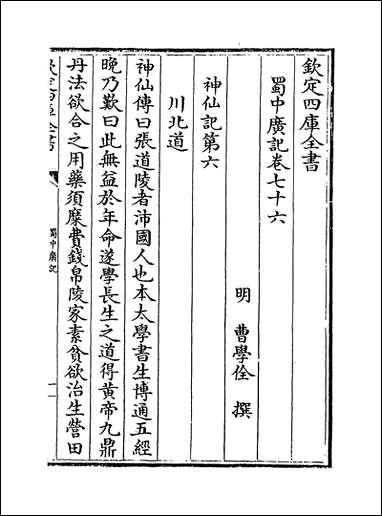 欽定四庫全書
蜀中廣記卷七十六
明 曹學佺 撰
神仙記第六
川北道
神仙傳曰張道陵者沛國人也本太學書生博通五經
晚乃歎曰此無益於年命遂學長生之道得黃帝九鼎
丹法欲合之用藥須糜費錢帛陵家素貧欲治生營田
欽定四庫全書
蜀中廣記
一